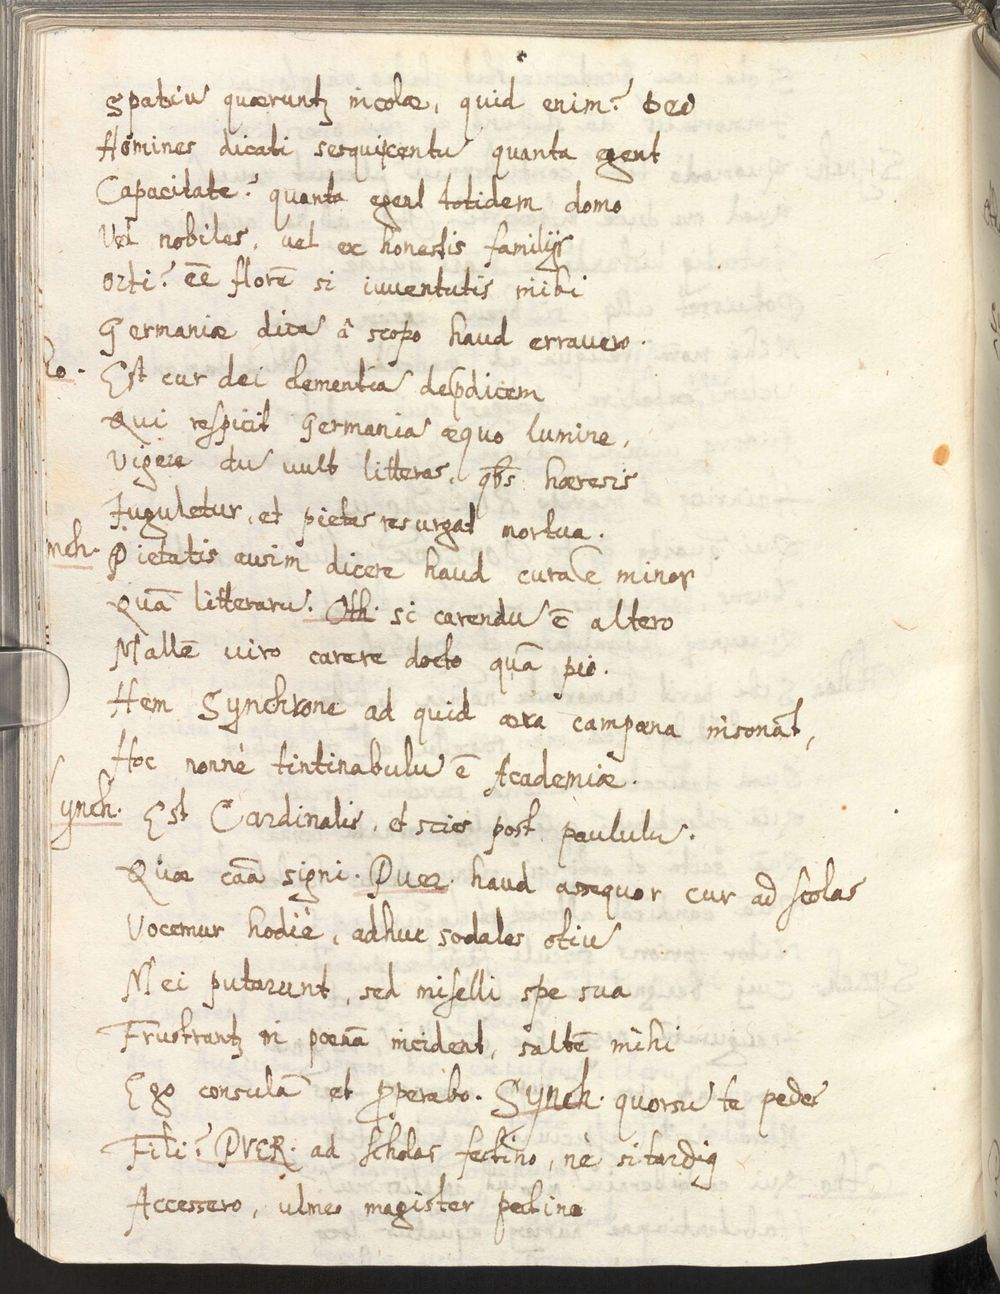 Spatiũ quæruntꝛ incolæ, quid enim? deo
Homines dicati sesquicentũ quanta egent
Capacitate? quanta egent totidem domo
Vel nobiles, vel ex honestis familijs
Orti? eẽ florẽ si iuuentutis mihi
Germaniæ dicã â scopo haud erravero.
Est cur dei clementiã deprædicem
Qui respicit Germaniã æquo lumine,
Vigere dũ uult litteras, qbs hæresis
Iuguletur, et pietas resurgat mortua.
nch. Pietatis ausim dicere haud curã ẽ minor
Quã litterarũ. Oth. si carendũ ẽ altero
Mallẽ uiro carere docto quã pio.
Hem Synchrone ad quid æra campana insonãt,
Hoc nonnè tintinabulũ ẽ Academiæ.
Synch. Est Cardinalis, et scies post paululũ.
Quæ caã signi. Puer. haud assequor cur ad scolas
Vocemur hodiè, adhuc sodales otiũ
Mei putarunt, sed miselli spe sua
Frustrantꝛ in pœnã incident, saltẽ mihi
Ego consulã et properabo. Synch. quorsũ te pedes
Fili? PVER. ad scholas festino, nè si tardiꝰ
Accessero, ulmeo magister pectine